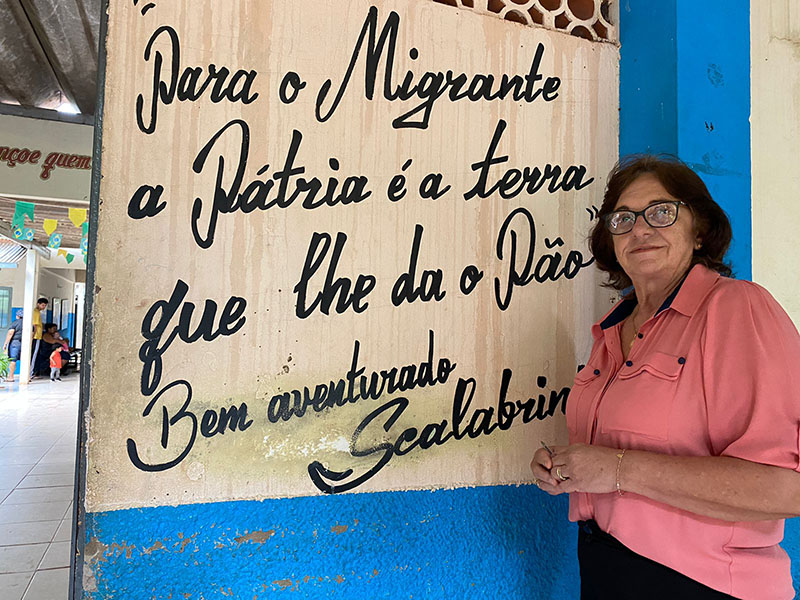 "Para o Migrante
a Pátria é a terra
que lhe da o Pão"
Bem aventurado
Scalabrin
nçoe quem